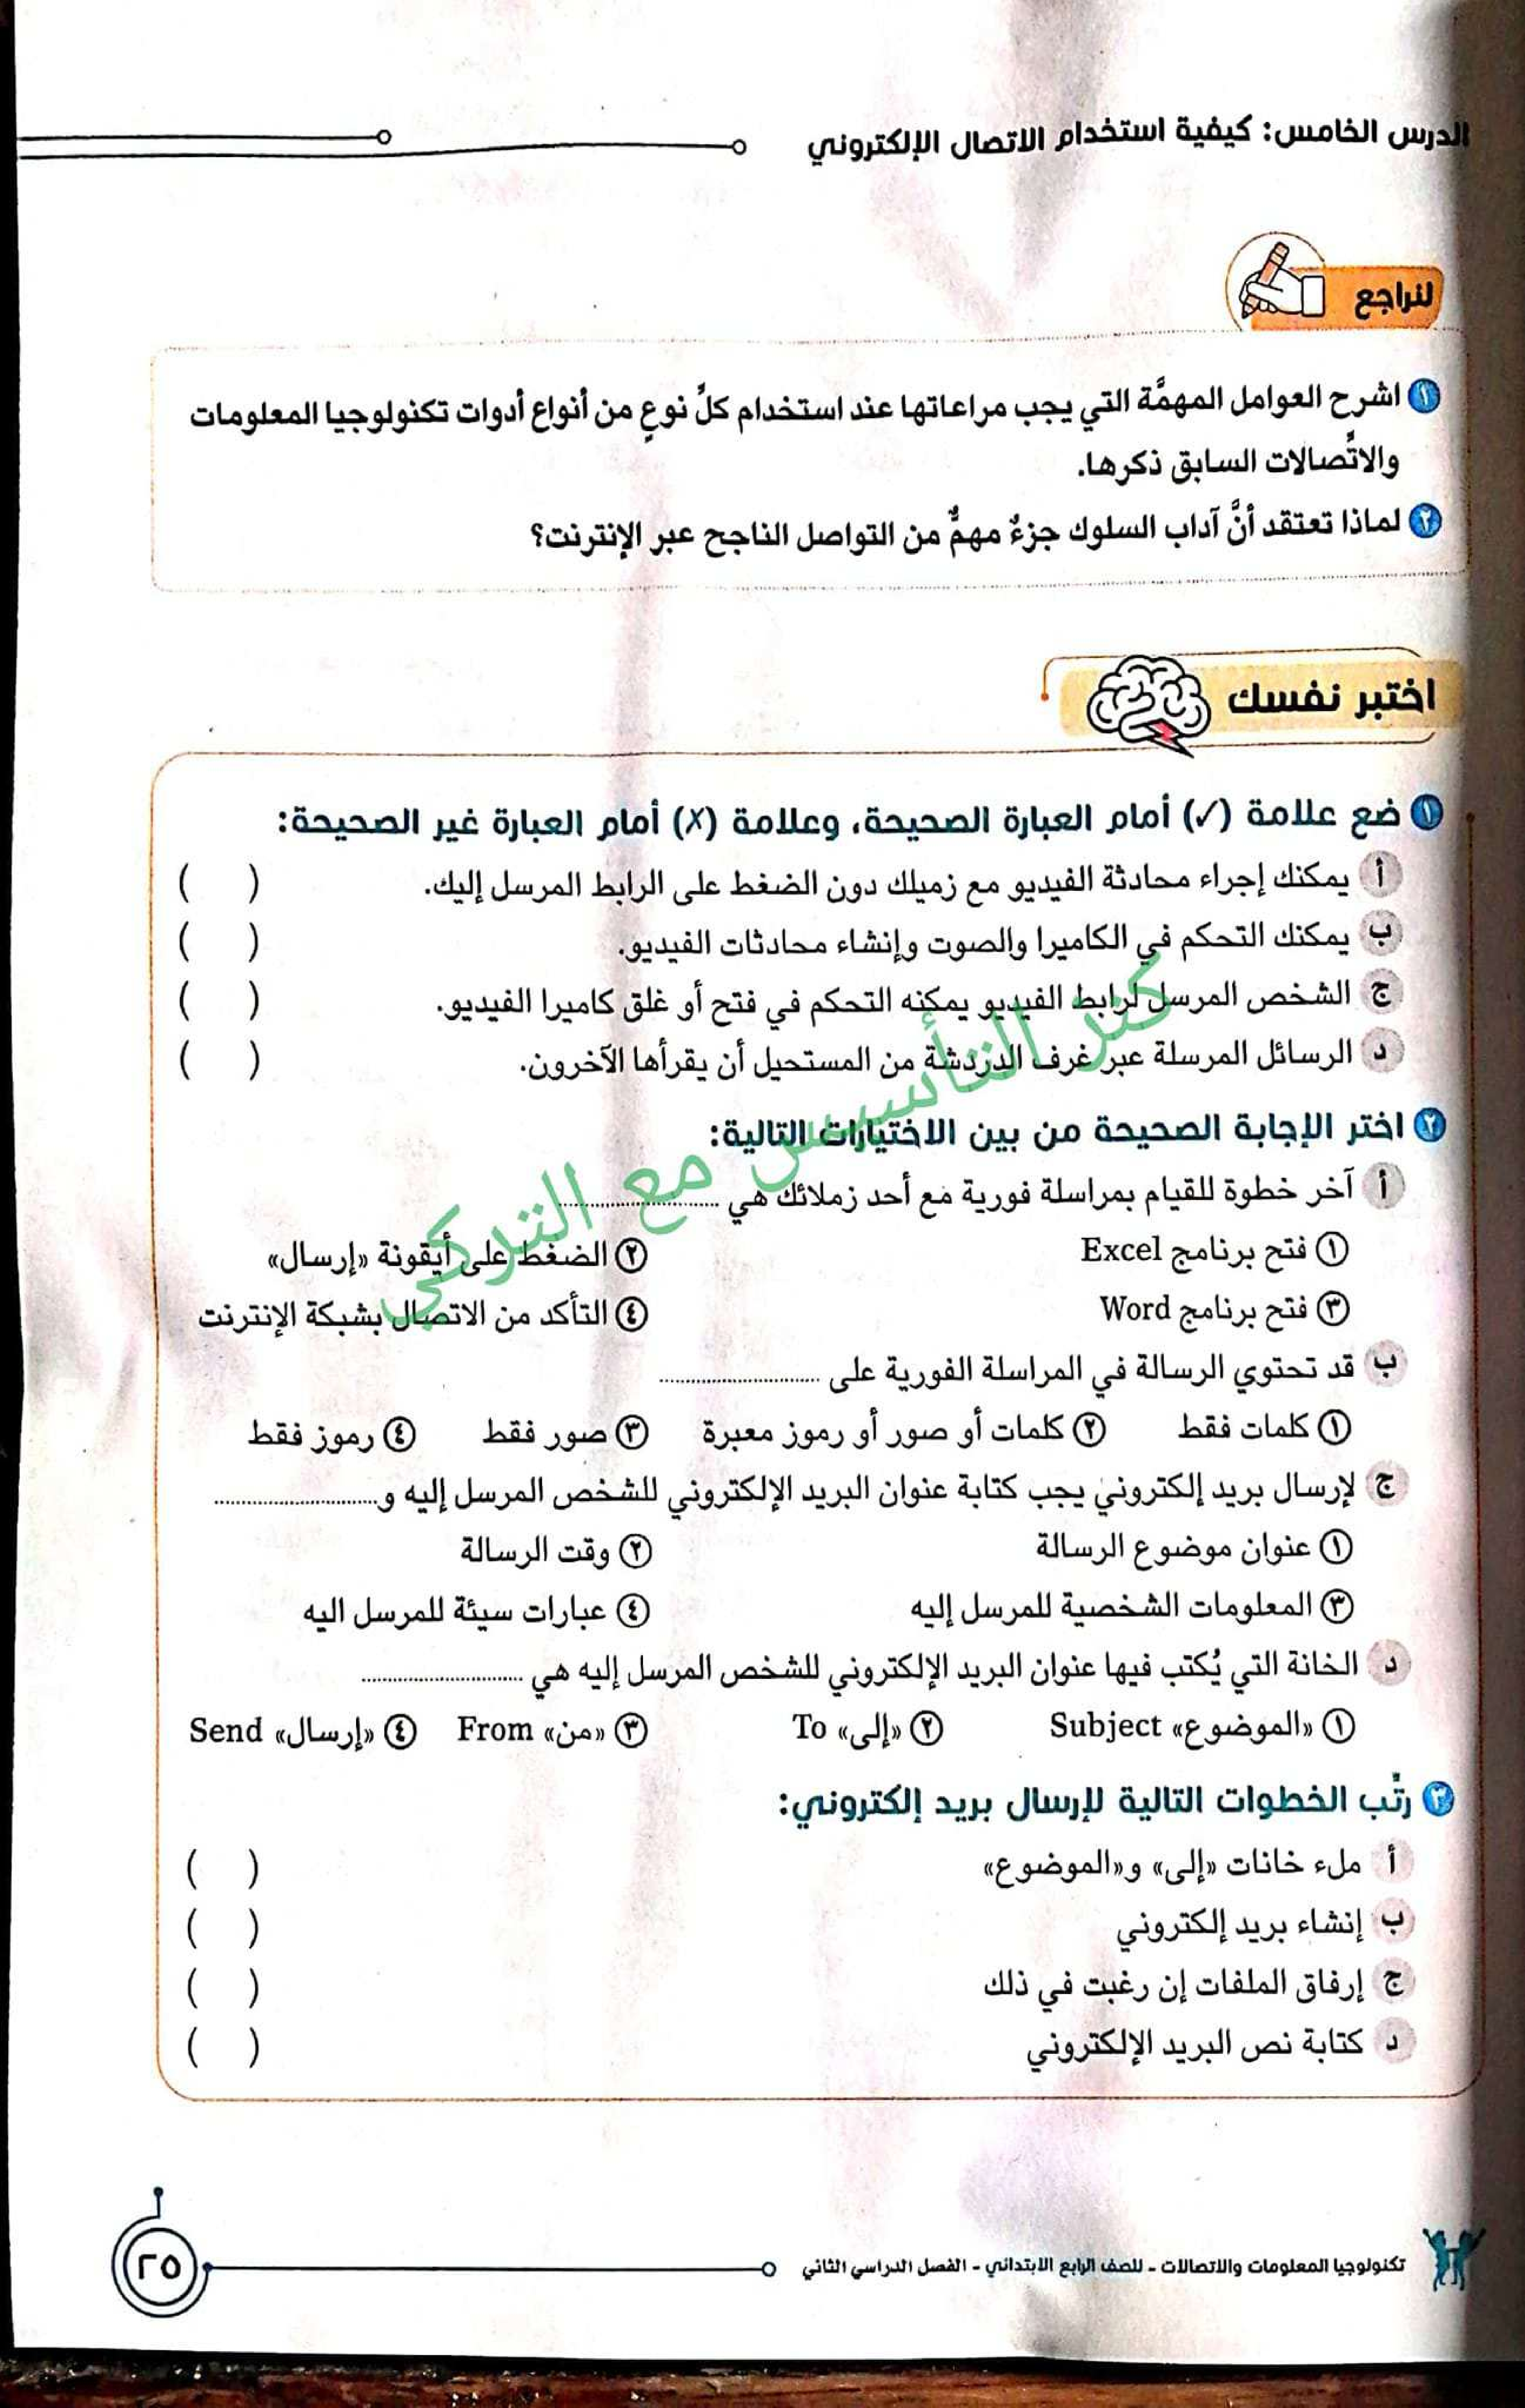 الدرس الخامس: كيفية استخدام الاتصال الإلكتروني
لنراجع
١ اشرح العوامل المهمَّة التي يجب مراعاتها عند استخدام كلِّ نوعٍ من أنواع أدوات تكنولوجيا المعلومات
والاتِّصالات السابق ذكرها.
٢ لماذا تعتقد أنَّ آداب السلوك جزءٌ مهمٌّ من التواصل الناجح عبر الإنترنت؟
اختبر نفسك
١ ضع علامة (✓) أمام العبارة الصحيحة، وعلامة (✗) أمام العبارة غير الصحيحة:
أ يمكنك إجراء محادثة الفيديو مع زميلك دون الضغط على الرابط المرسل إليك. ( )
ب يمكنك التحكم في الكاميرا والصوت وإنشاء محادثات الفيديو. ( )
ج الشخص المرسل لرابط الفيديو يمكنه التحكم في فتح أو غلق كاميرا الفيديو. ( )
د الرسائل المرسلة عبر غرف الدردشة من المستحيل أن يقرأها الآخرون. ( )
كنز التأسيس مع التركي
٢ اختر الإجابة الصحيحة من بين الاختيارات التالية:
أ آخر خطوة للقيام بمراسلة فورية مع أحد زملائك هي ........................
١ فتح برنامج Excel ٢ الضغط على أيقونة «إرسال»
٣ فتح برنامج Word ٤ التأكد من الاتصال بشبكة الإنترنت
ب قد تحتوي الرسالة في المراسلة الفورية على ........................
١ كلمات فقط ٢ كلمات أو صور أو رموز معبرة ٣ صور فقط ٤ رموز فقط
ج لإرسال بريد إلكتروني يجب كتابة عنوان البريد الإلكتروني للشخص المرسل إليه و........................
١ عنوان موضوع الرسالة ٢ وقت الرسالة
٣ المعلومات الشخصية للمرسل إليه ٤ عبارات سيئة للمرسل اليه
د الخانة التي يُكتب فيها عنوان البريد الإلكتروني للشخص المرسل إليه هي ........................
١ «الموضوع» Subject ٢ «إلى» To ٣ «من» From ٤ «إرسال» Send
٣ رتِّب الخطوات التالية لإرسال بريد إلكتروني:
أ ملء خانات «إلى» و«الموضوع» ( )
ب إنشاء بريد إلكتروني ( )
ج إرفاق الملفات إن رغبت في ذلك ( )
د كتابة نص البريد الإلكتروني ( )
تكنولوجيا المعلومات والاتصالات - للصف الرابع الابتدائي - الفصل الدراسي الثاني
٢٥